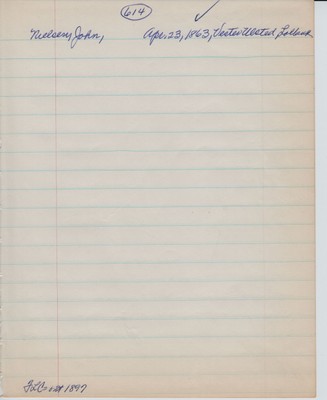 614
Nielsen, John, Apr. 23, 1863, Vester Ulsted,
1897